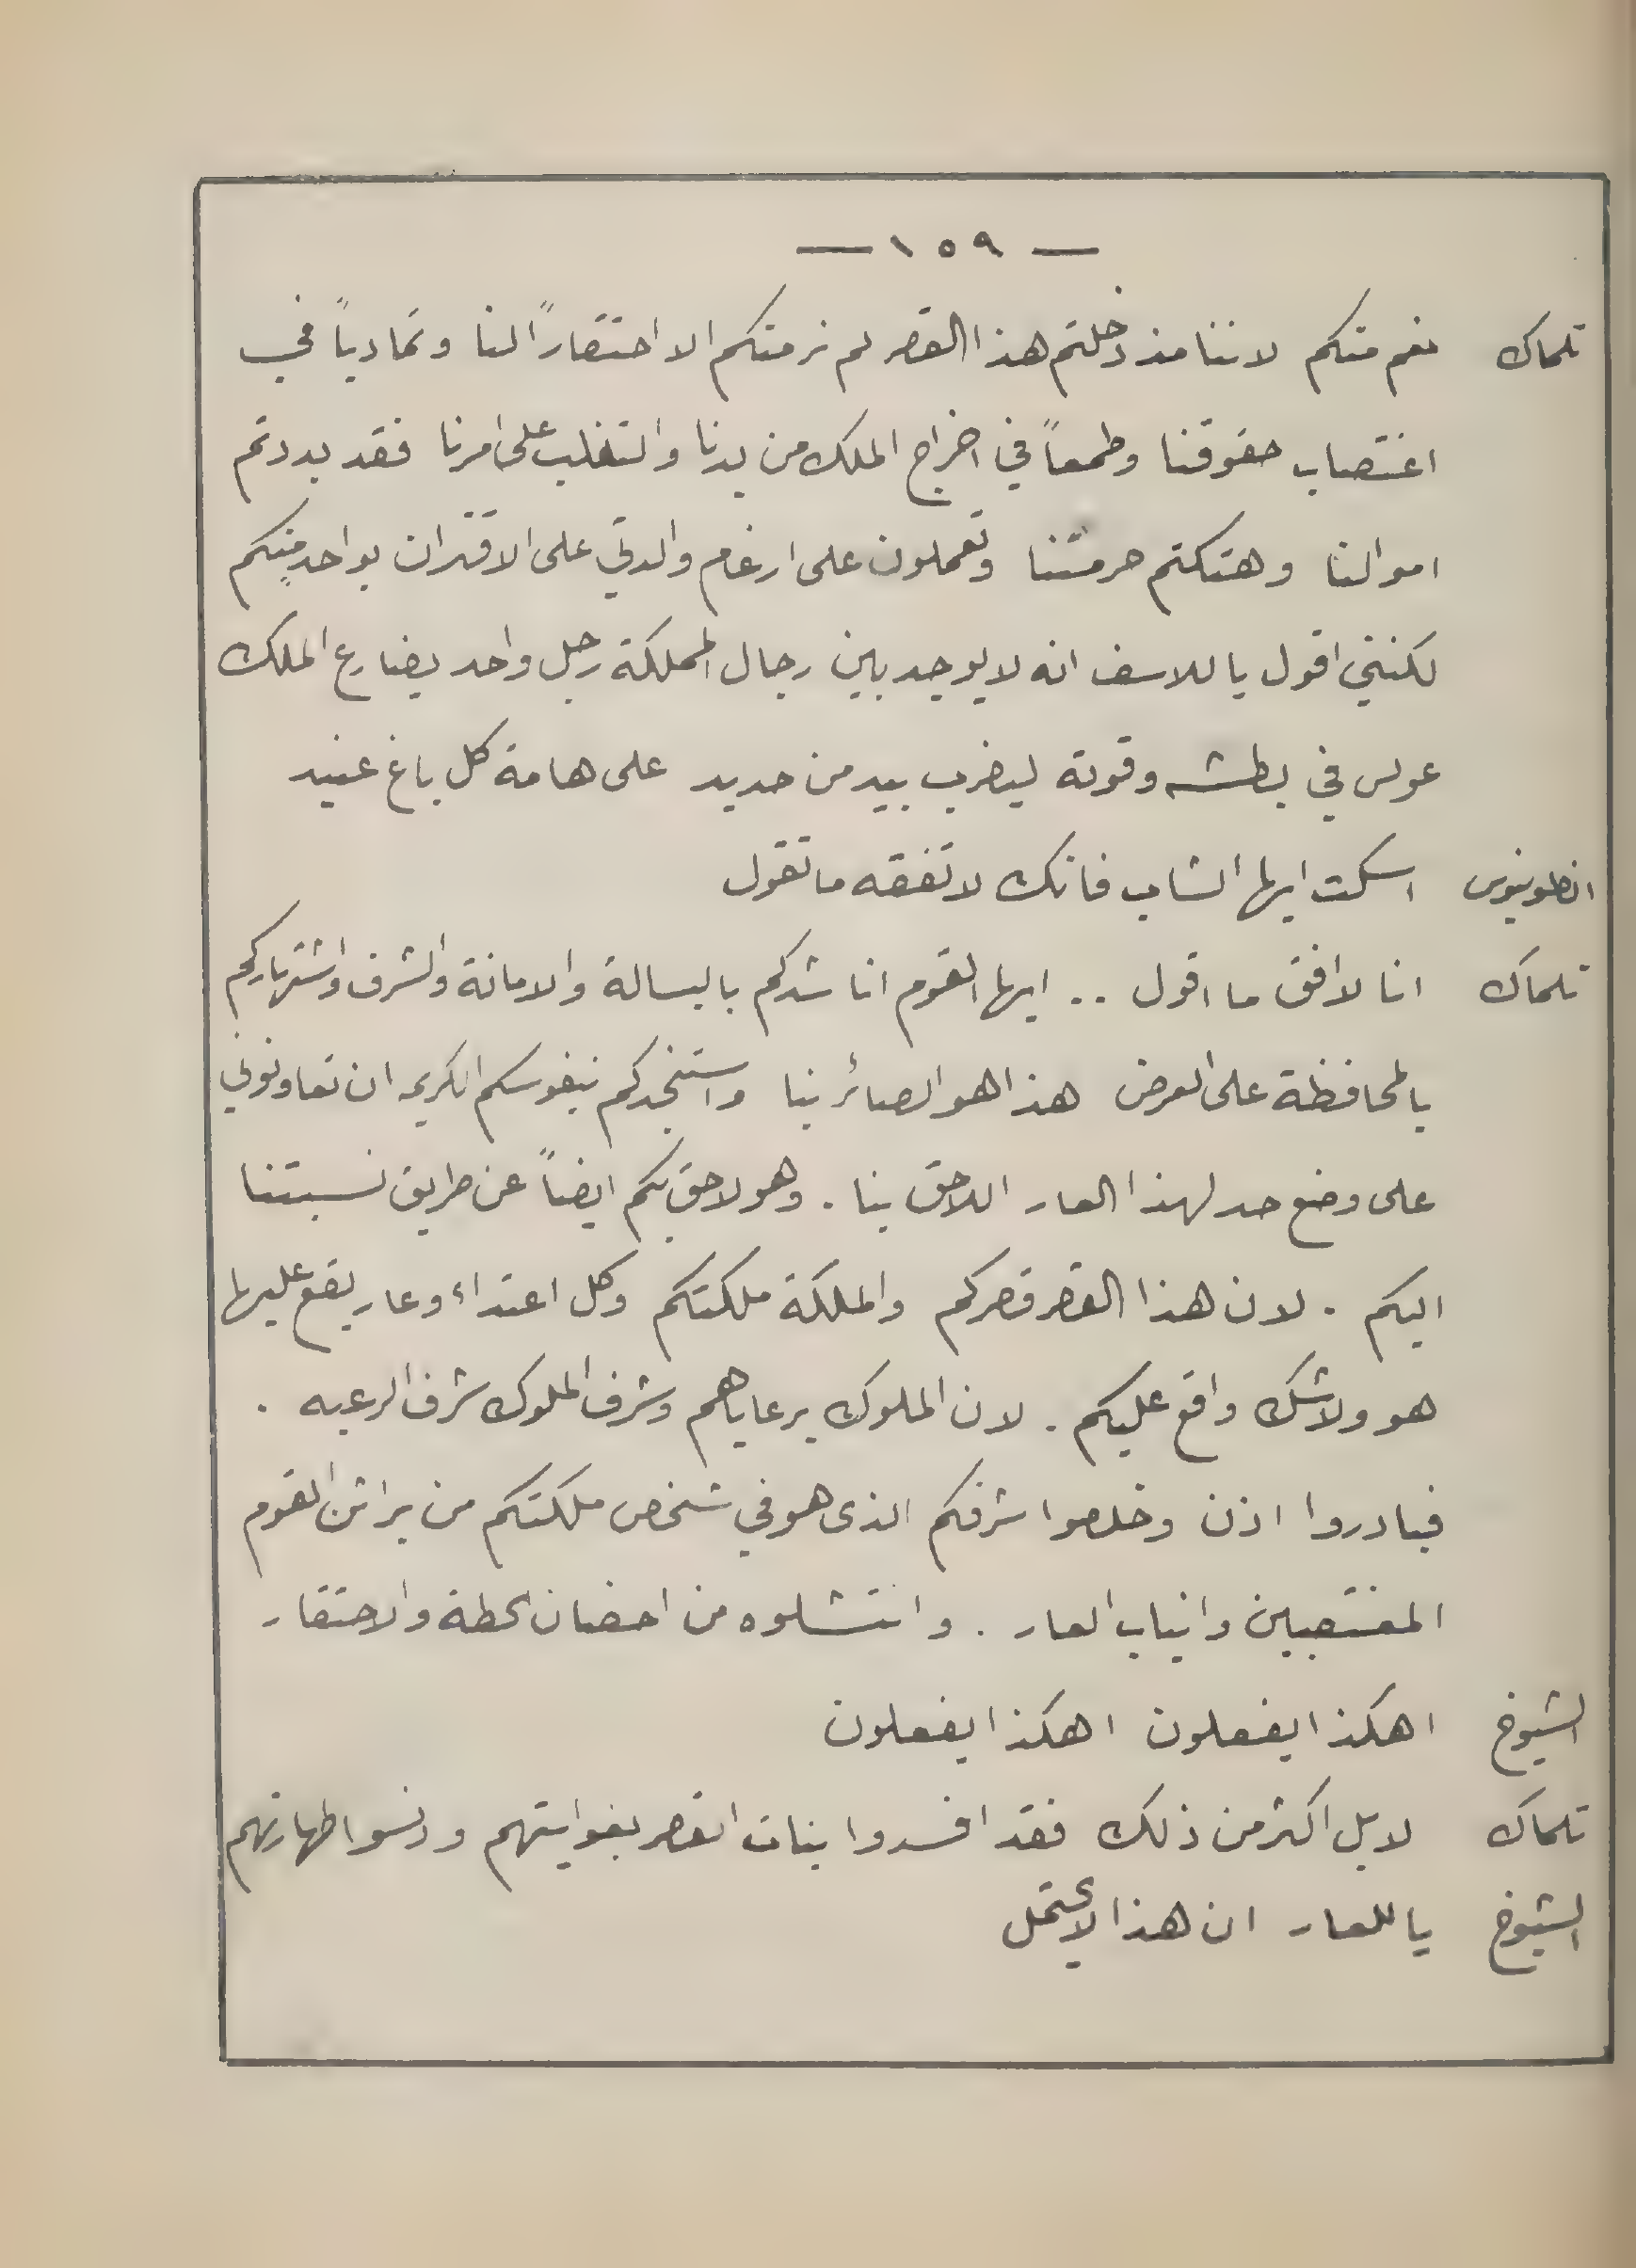 — ١٥٩ —
تلماك نعم منكم لاننا مذ دخلتم هذا القصر لم نر منكم الا احتقاراً لنا وتمادياً في
اغتصاب حقوقنا وطمعاً في اخراج الملك من يدنا والتغلب على امرنا فقد بددتم
اموالنا وهتكتم حرمتنا وتعملون على ارغام والدتي على الاقتران بواحد منكم
لكنني اقول يا للاسف انه لا يوجد بين رجال المملكة رجل واحد يضارع الملك
عولس في بطشه وقوته ليضرب بيد من حديد على هامة كل باغ عنيد
انطونيوس اسكت ايها الشاب فانك لا تفقه ما تقول
تلماك انا لافق ما اقول .. ايها القوم اناشدكم بالبسالة والامانة والشرف واشتهاركم
بالمحافظة على العرض هذا هو الصائر بنا واستنجدكم بنفوسكم الكريمه ان تعاونوني
على وضع حد لهذا العار اللاحق بنا . وهو لاحق بكم ايضاً عن طريق نسبتنا
اليكم . لان هذا القصر قصركم والملكة ملكتكم وكل اعتداء وعار يقع عليها
هو ولاشك واقع عليكم . لان الملوك برعاياهم وشرف الملوك شرف الرعيه .
فبادروا اذن وخلصوا شرفكم الذى هو في شخص ملكتكم من براثن القوم
المغتصبين وانياب العار . وانتشلوه من احضان الحطة والاحتقار
الشيوخ اهكذا يفعلون اهكذا يفعلون
تلماك لا بل اكثر من ذلك فقد افسدوا بنات القصر بغوايتهم ودنسوا طهارتهم
الشيوخ يا للعار ان هذا لا يحتمل